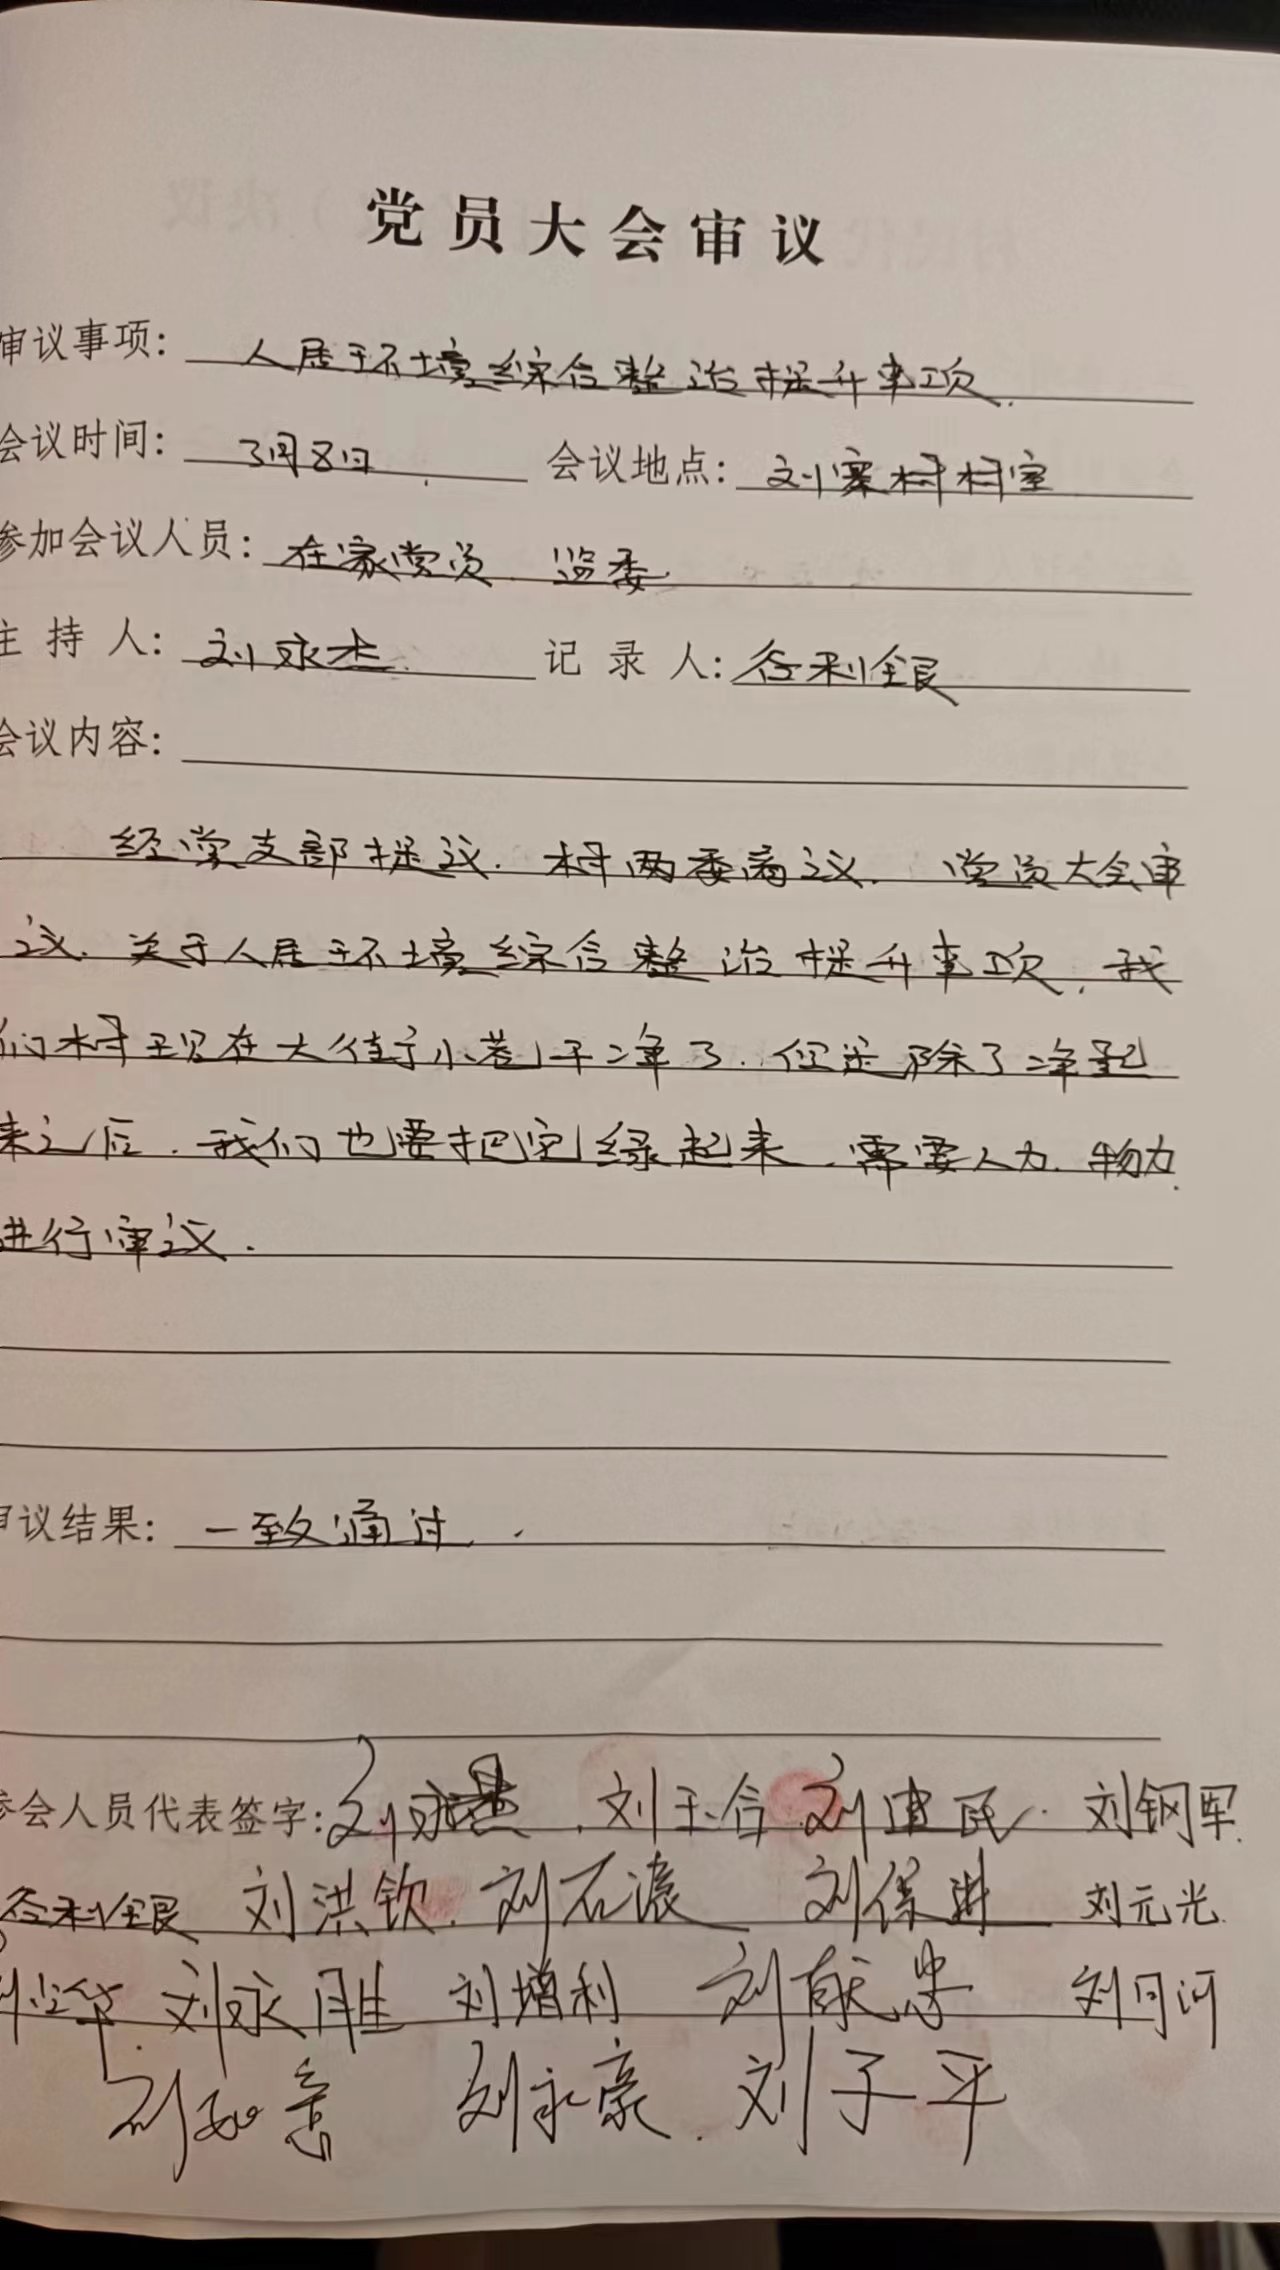 党员大会审议
审议事项: 人居环境综合整治提升事项.
会议时间: 3月8日. 会议地点: 刘寨村村室
参加会议人员: 在家党员 监委
主持人: 刘永杰. 记录人: 谷利银
会议内容:
经党支部提议. 村两委商议. 党员大会审
议. 关于人居环境综合整治提升事项, 我
们村现在大街小巷干净了. 但是除了净起
来之后. 我们也要把它绿起来. 需要人力. 物力.
进行审议.
审议结果: 一致通过.
参会人员代表签字: 刘玉合 刘建民. 刘钢军.
谷利银 刘洪钦. 刘石滚 刘保进 刘元光.
刘永胜 刘增利 刘献忠 刘同河
刘永豪. 刘子平